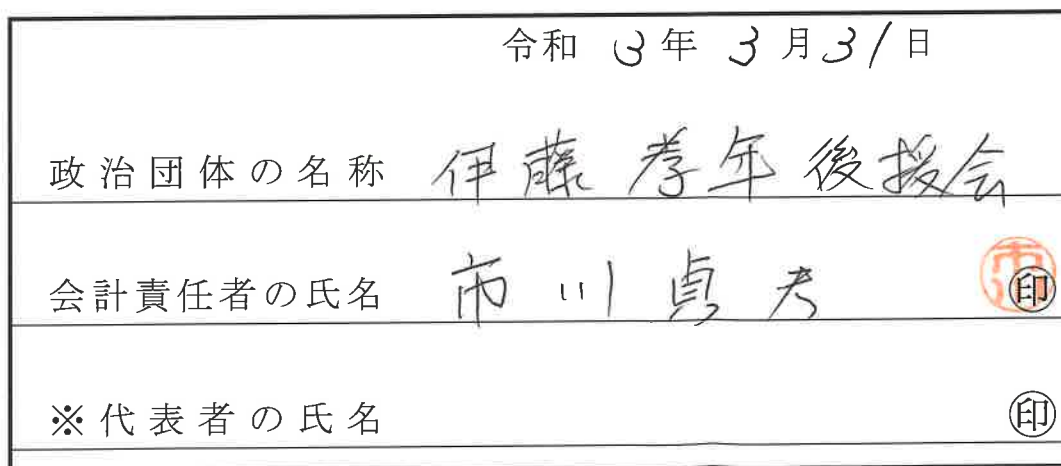 令和 3年 3月31日
政治団体の名称 伊藤孝年後援会
会計責任者の氏名 市川貞考 印
※代表者の氏名 印